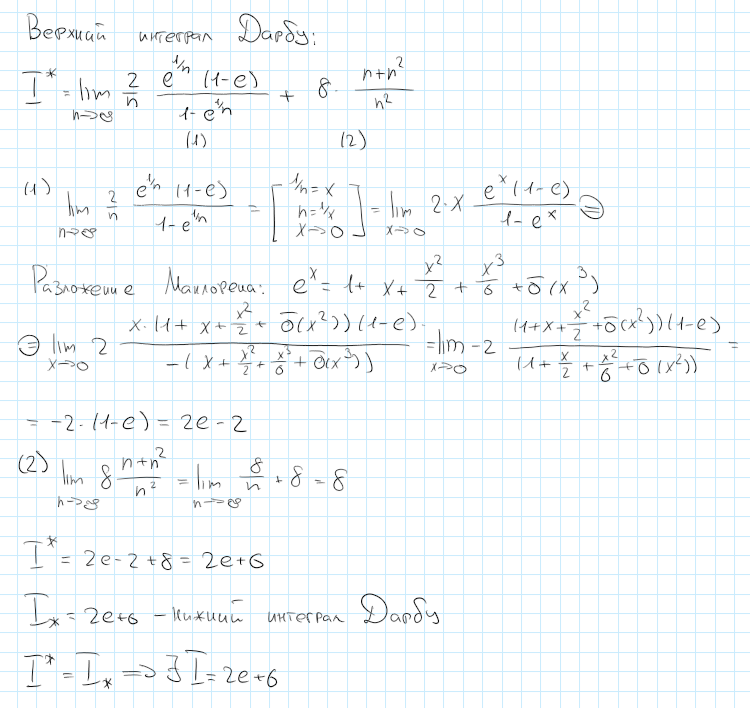 Верхний интеграл Дарбу:
I* = lim_{n→∞} 2/n · e^{1/n} (1-e) / (1-e^{1/n}) + 8 · (n+n²)/n²
(1) (2)
(1) lim_{n→∞} 2/n · e^{1/n} (1-e) / (1-e^{1/n}) = [1/n = x, n = 1/x, x→0] = lim_{x→0} 2·x e^x (1-e) / (1-e^x) ⊜
Разложение Маклорена: e^x = 1 + x + x²/2 + x³/6 + o̅(x³)
⊜ lim_{x→0} 2 x·(1 + x + x²/2 + o̅(x²))(1-e) / -(x + x²/2 + x³/6 + o̅(x³)) = lim_{x→0} -2 (1+x+x²/2+o̅(x²))(1-e) / (1+x/2+x²/6+o̅(x²)) =
= -2·(1-e) = 2e-2
(2) lim_{n→∞} 8 (n+n²)/n² = lim_{n→∞} 8/n + 8 = 8
I* = 2e-2+8 = 2e+6
I_* = 2e+6 – нижний интеграл Дарбу
I* = I_* ⇒ ∃ I = 2e+6